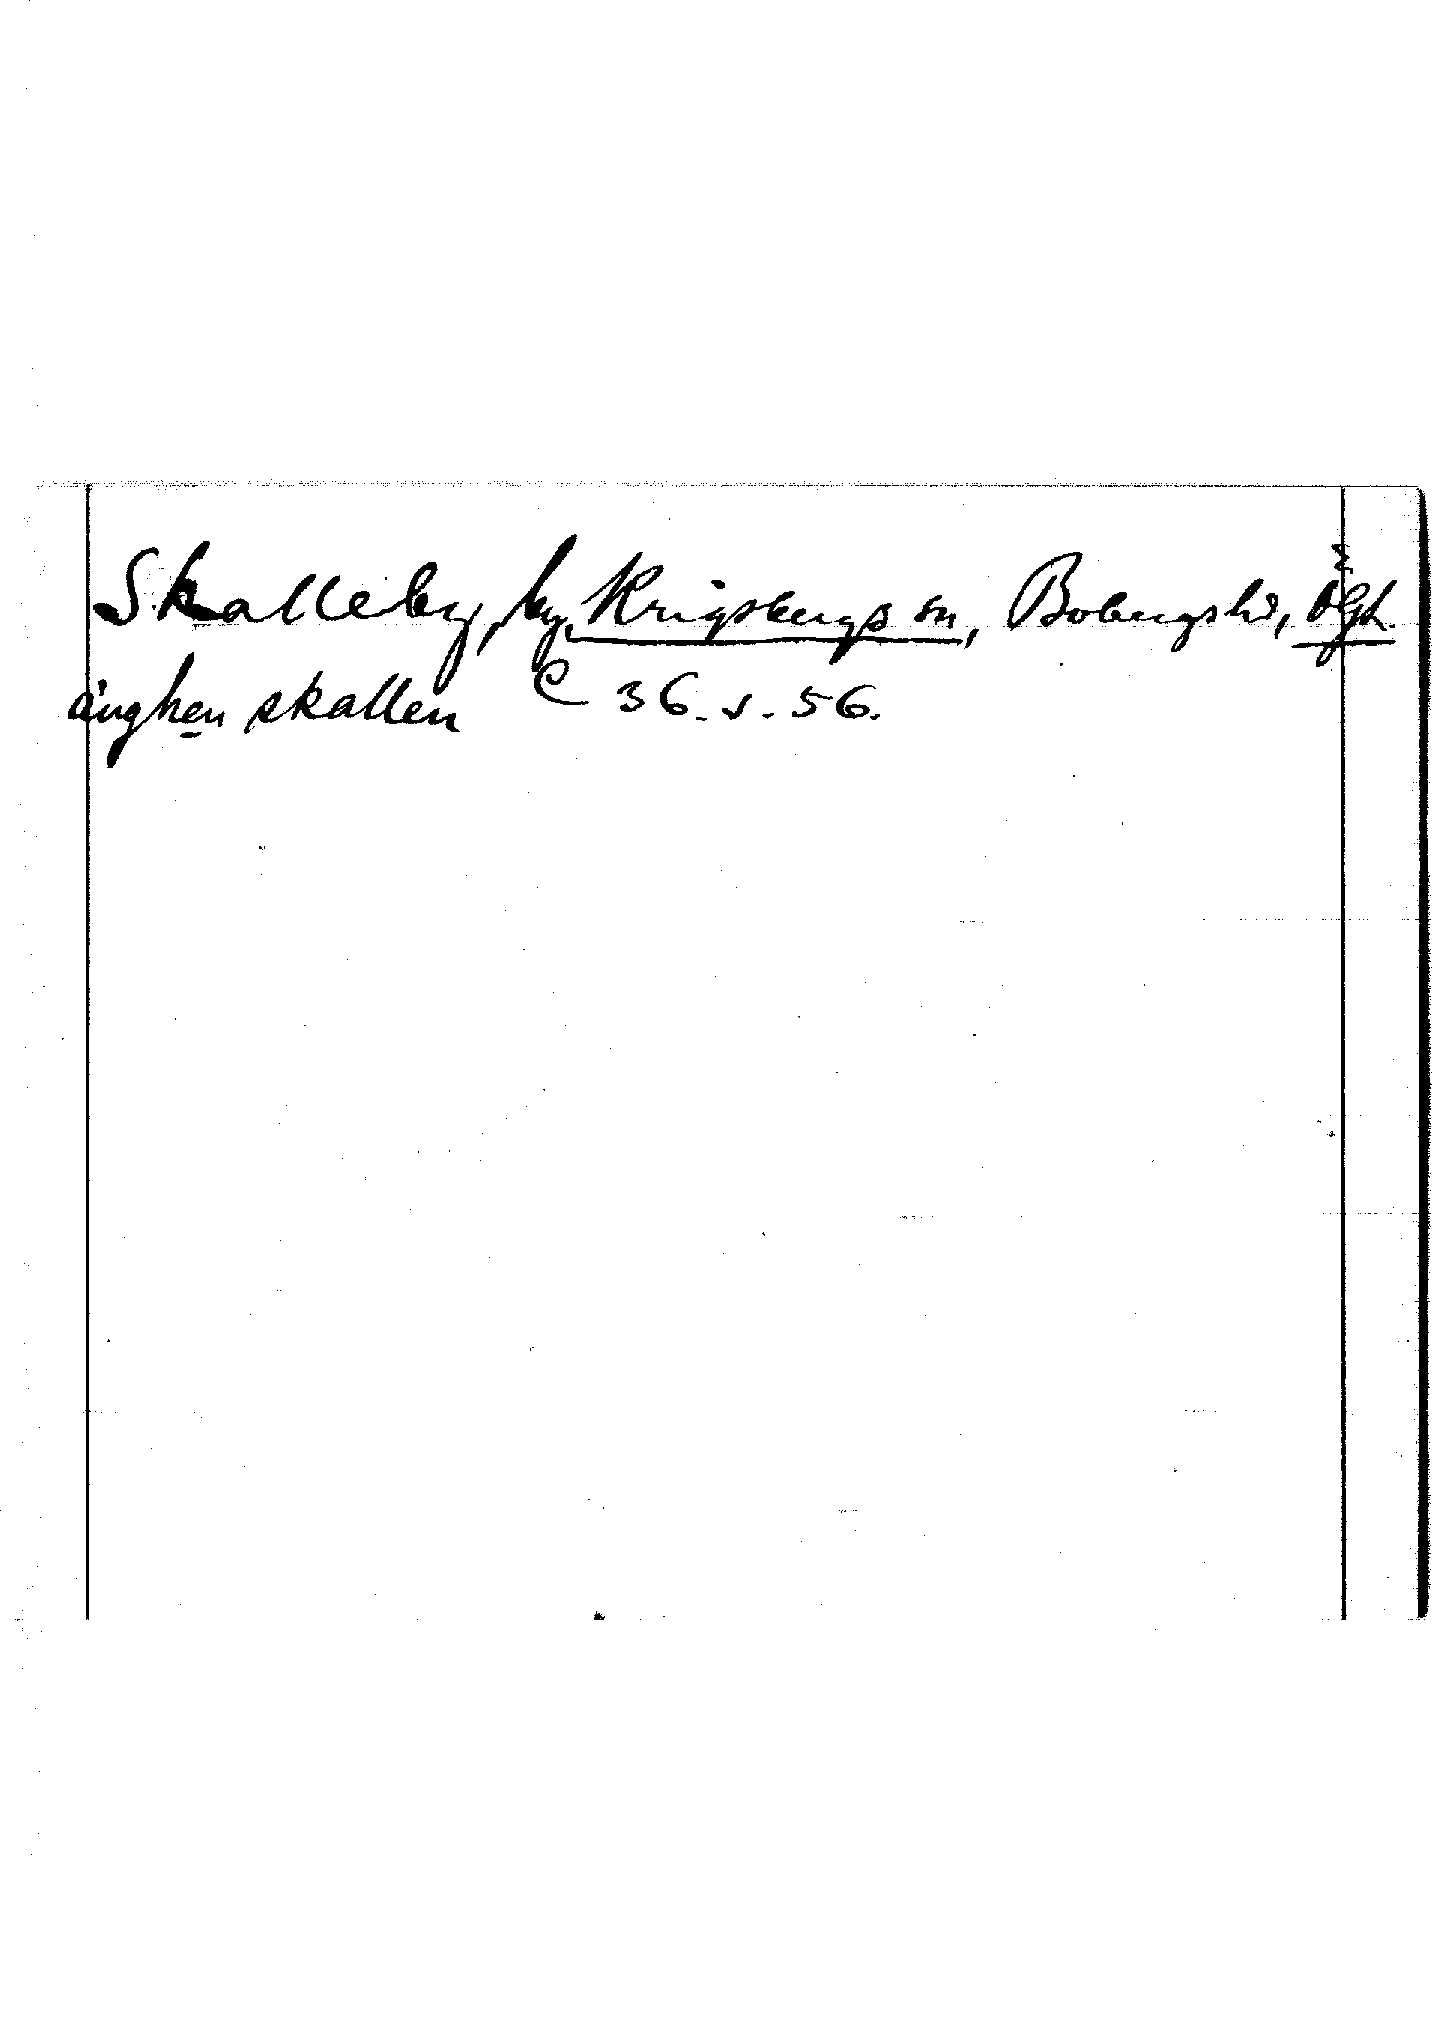 Skalleby, by, Krigsbergs sn, Bobergs hd, Ögtl.
änghen skallen C 36. s. 56.